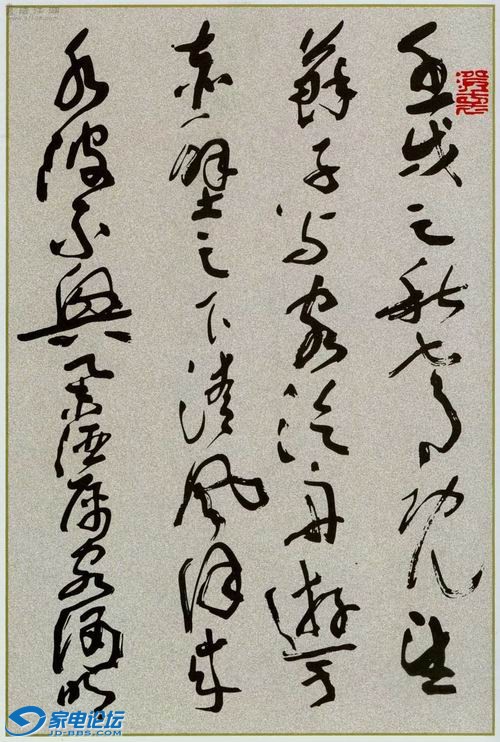 壬戌之秋七月既望
蘇子与客泛舟遊於
赤壁之下清風徐來
水波不興舉酒屬客誦明
家电论坛
JD-BBS.COM